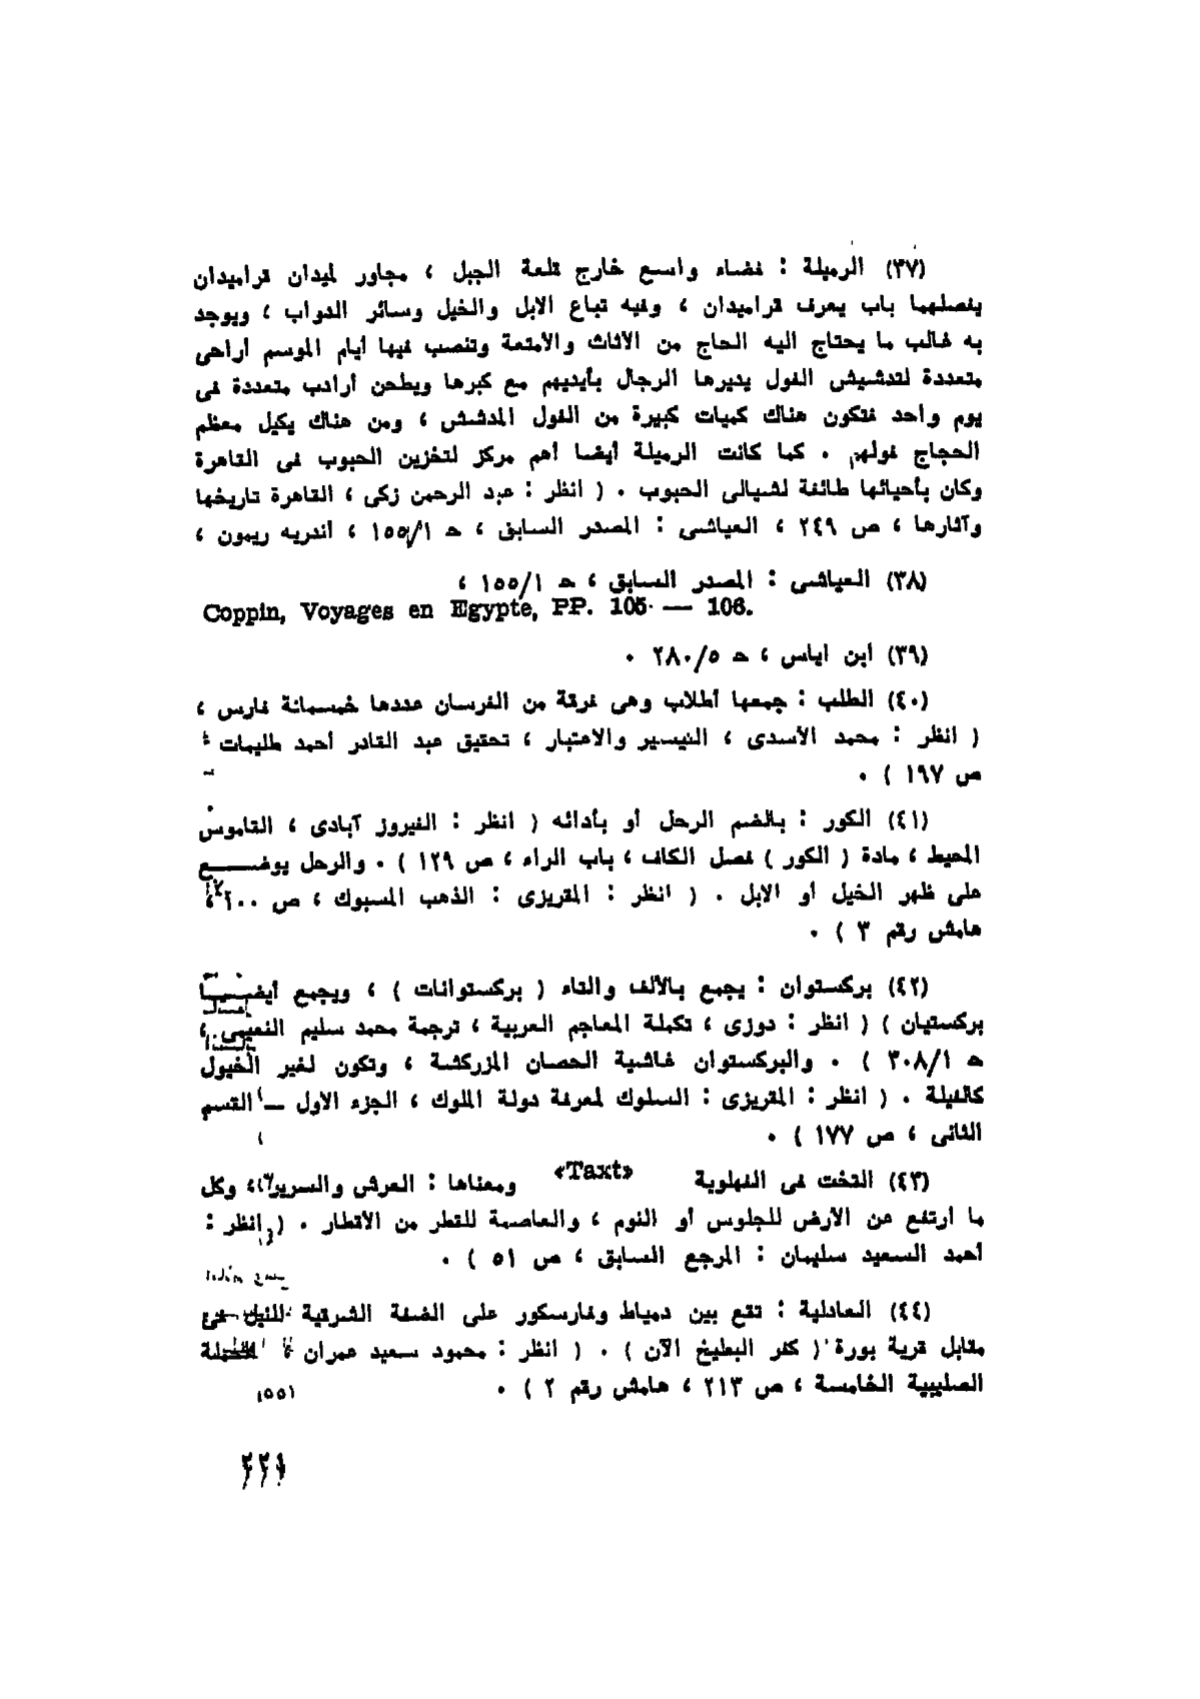 (٣٧) الرميلة : فضاء واسع خارج قلعة الجبل ، مجاور لميدان قراميدان
يفصلهما باب يعرف قراميدان ، وفيه تباع الابل والخيل وسائر الدواب ، ويوجد
به غالب ما يحتاج اليه الحاج من الاثاث والأمتعة وتنصب فيها أيام الموسم أراحى
متعددة لتدشيش الفول يديرها الرجال بأيديهم مع كبرها ويطحن أرادب متعددة فى
يوم واحد فتكون هناك كميات كبيرة من الفول المدشش ، ومن هناك يكيل معظم
الحجاج فولهم . كما كانت الرميلة أيضا أهم مركز لتخزين الحبوب فى القاهرة
وكان بأحيائها طائفة لشيالى الحبوب . ( انظر : عبد الرحمن زكى ، القاهرة تاريخها
وآثارها ، ص ٢٤٩ ، العياشى : المصدر السابق ، حـ ١٥٥/١ ، أندريه ريمون ،
(٣٨) العياشى : المصدر السابق ، حـ ١٥٥/١ ،
Coppin, Voyages en Egypte, PP. 105 — 106.
(٣٩) ابن اياس ، حـ ٢٨٠/٥ .
(٤٠) الطلب : جمعها أطلاب وهى فرقة من الفرسان عددها خمسمائة فارس ،
( انظر : محمد الأسدى ، التيسير والاعتبار ، تحقيق عبد القادر أحمد طليمات ،
ص ١٩٧ ) .
(٤١) الكور : بالضم الرحل أو بأدائه ( انظر : الفيروز آبادى ، القاموس
المحيط ، مادة ( الكور ) فصل الكاف ، باب الراء ، ص ١٢٩ ) . والرحل يوضـــــع
على ظهر الخيل أو الابل . ( انظر : المقريزى : الذهب المسبوك ، ص ٢٠٠ ،
هامش رقم ٣ ) .
(٤٢) بركستوان : يجمع بالألف والتاء ( بركستوانات ) ، ويجمع أيضـــا
بركستيان ) ( انظر : دوزى ، تكملة المعاجم العربية ، ترجمة محمد سليم النعيمى ،
حـ ٣٠٨/١ ) . والبركستوان غاشية الحصان المزركشة ، وتكون لغير الخيول
كالفيلة . ( انظر : المقريزى : السلوك لمعرفة دولة الملوك ، الجزء الاول — القسم
الثانى ، ص ١٧٧ ) .
(٤٣) التخت فى الفهلوية «Taxt» ومعناها : العرش والسرير ، وكل
ما ارتفع عن الأرض للجلوس أو النوم ، والعاصمة للقطر من الأقطار . ( انظر :
أحمد السعيد سليمان : المرجع السابق ، ص ٥١ ) .
(٤٤) العادلية : تقع بين دمياط وفارسكور على الضفة الشرقية للنيل فى
مقابل قرية بورة ( كفر البطيخ الآن ) . ( انظر : محمود سعيد عمران ، الحملة
الصليبية الخامسة ، ص ٢١٣ ، هامش رقم ٢ ) .